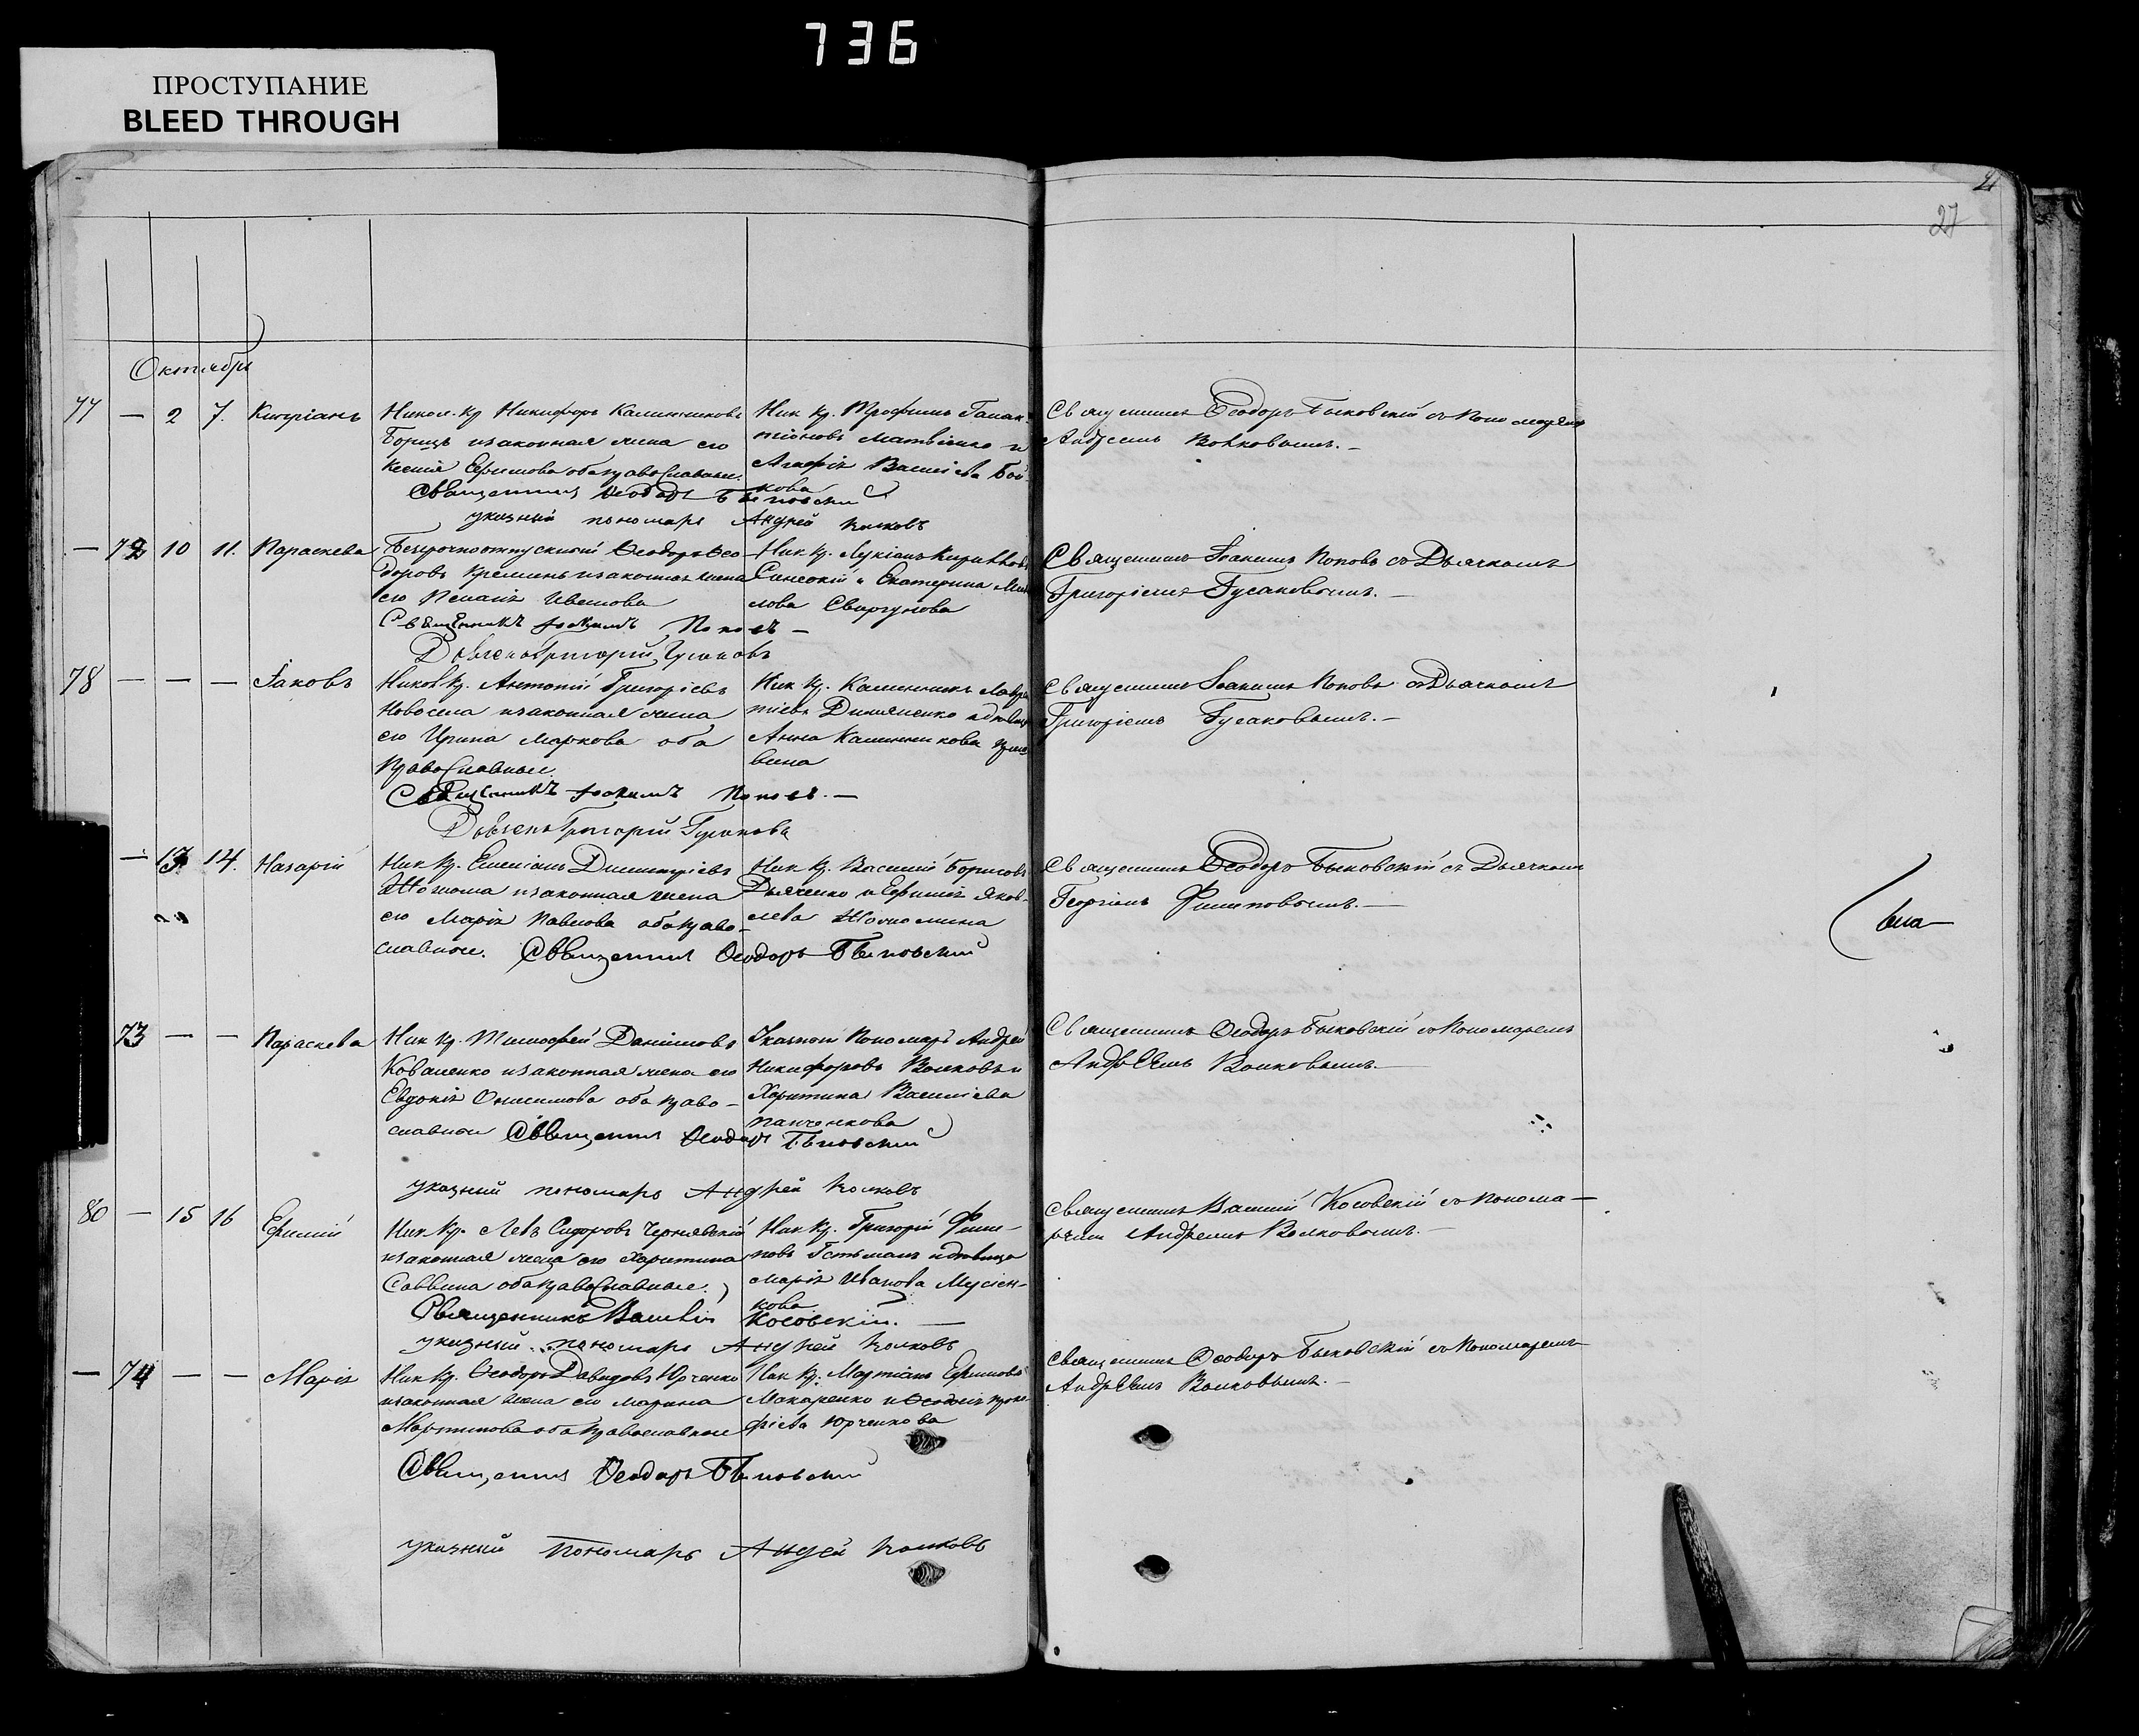 736
ПРОСТУПАНИЕ
BLEED THROUGH
27
Октябрь
77 — 2 7. Кипріанъ
Никол. Кр. Никифоръ Калинниковъ
Борищъ и законная жена его
Ксенія Ефимова оба православные.
Священникъ Ѳеодоръ Быковскій
указный пономарь Андрей Волковъ
Ник. Кр. Трофимъ
Матвіенко и
Агафія Василіева Бой-
кова
Священникъ Ѳеодоръ Быковскій съ Пономаремъ
Андреемъ Волковымъ. —
— 72 10 11. Параскева
Безсрочноотпускной Ѳеодоръ Ѳео
доровъ Кремень и законная жена
его Пелагія Ивановa
Священникъ Іоакимъ Поповъ —
Дьячекъ Григорій Гусаковъ
Ник. Кр. Лукіанъ Кирилловъ
Синсокій и Екатерина
Свиргунова
Священникъ Іоакимъ Поповъ съ Дьячкомъ
Григоріемъ Гусаковымъ. —
78 — — — Іаковъ
Никол. Кр. Антоній Григоріевъ
Новосела и законная жена
его Ирина Маркова оба
Православные
Священникъ Іоакимъ Поповъ. —
Дьячекъ Григорій Гусаковъ
Ник. Кр. Калинникъ
Демяненко и дѣвица
Анна Калинникова
вина
Священникъ Іоакимъ Поповъ съ Дьячкомъ
Григоріемъ Гусаковымъ. —
— 13 14. Назарій
Ник. Кр. Емеліанъ Димитріевъ
и законная жена
его Марія Павлова оба право-
славные. Священникъ Ѳеодоръ Быковскій
Ник. Кр. Василій Борисовъ
Дьяченко и Ефимія Яков-
лева
Священникъ Ѳеодоръ Быковскій съ Дьячкомъ
Георгіемъ Филиповымъ. —
73 — — Параскева
Ник. Кр. Тимофей Даніиловъ
Коваленко и законная жена его
Евдокія Онисимова оба право-
славные Священникъ Ѳеодоръ Быковскій
указный пономарь Андрей Волковъ
Указной Пономарь Андрей
Никифоровъ Волковъ и
Харитина Василіева
Панченкова
Священникъ Ѳеодоръ Быковскій съ Пономаремъ
Андрѣемъ Волковымъ. —
80 — 15 16 Ефимій
Ник. Кр. Левъ Сидоровъ Чернявскій
и законная жена его Харитина
Саввина оба православные.
Священникъ Василій Косовскій. —
указный пономарь Андрей Волковъ
Ник. Кр. Григорій Фили-
повъ Гетьманъ и дѣвица
Марія Иванова Мусіен-
кова
Священникъ Василій Косовскій съ Понома-
ремъ Андреемъ Волковымъ. —
— 74 — — Марія
Ник. Кр. Ѳеодоръ Давидовъ Юрченко
и законная жена его Марина
Мартинова оба православные
Священникъ Ѳеодоръ Быковскій
указный пономарь Андрей Волковъ
Ник. Кр. Мартіанъ Ефимовъ
Макаренко и Ѳеодосія Проко-
фіева Юрченкова
Священникъ Ѳеодоръ Быковскій съ Пономаремъ
Андрѣемъ Волковымъ. —